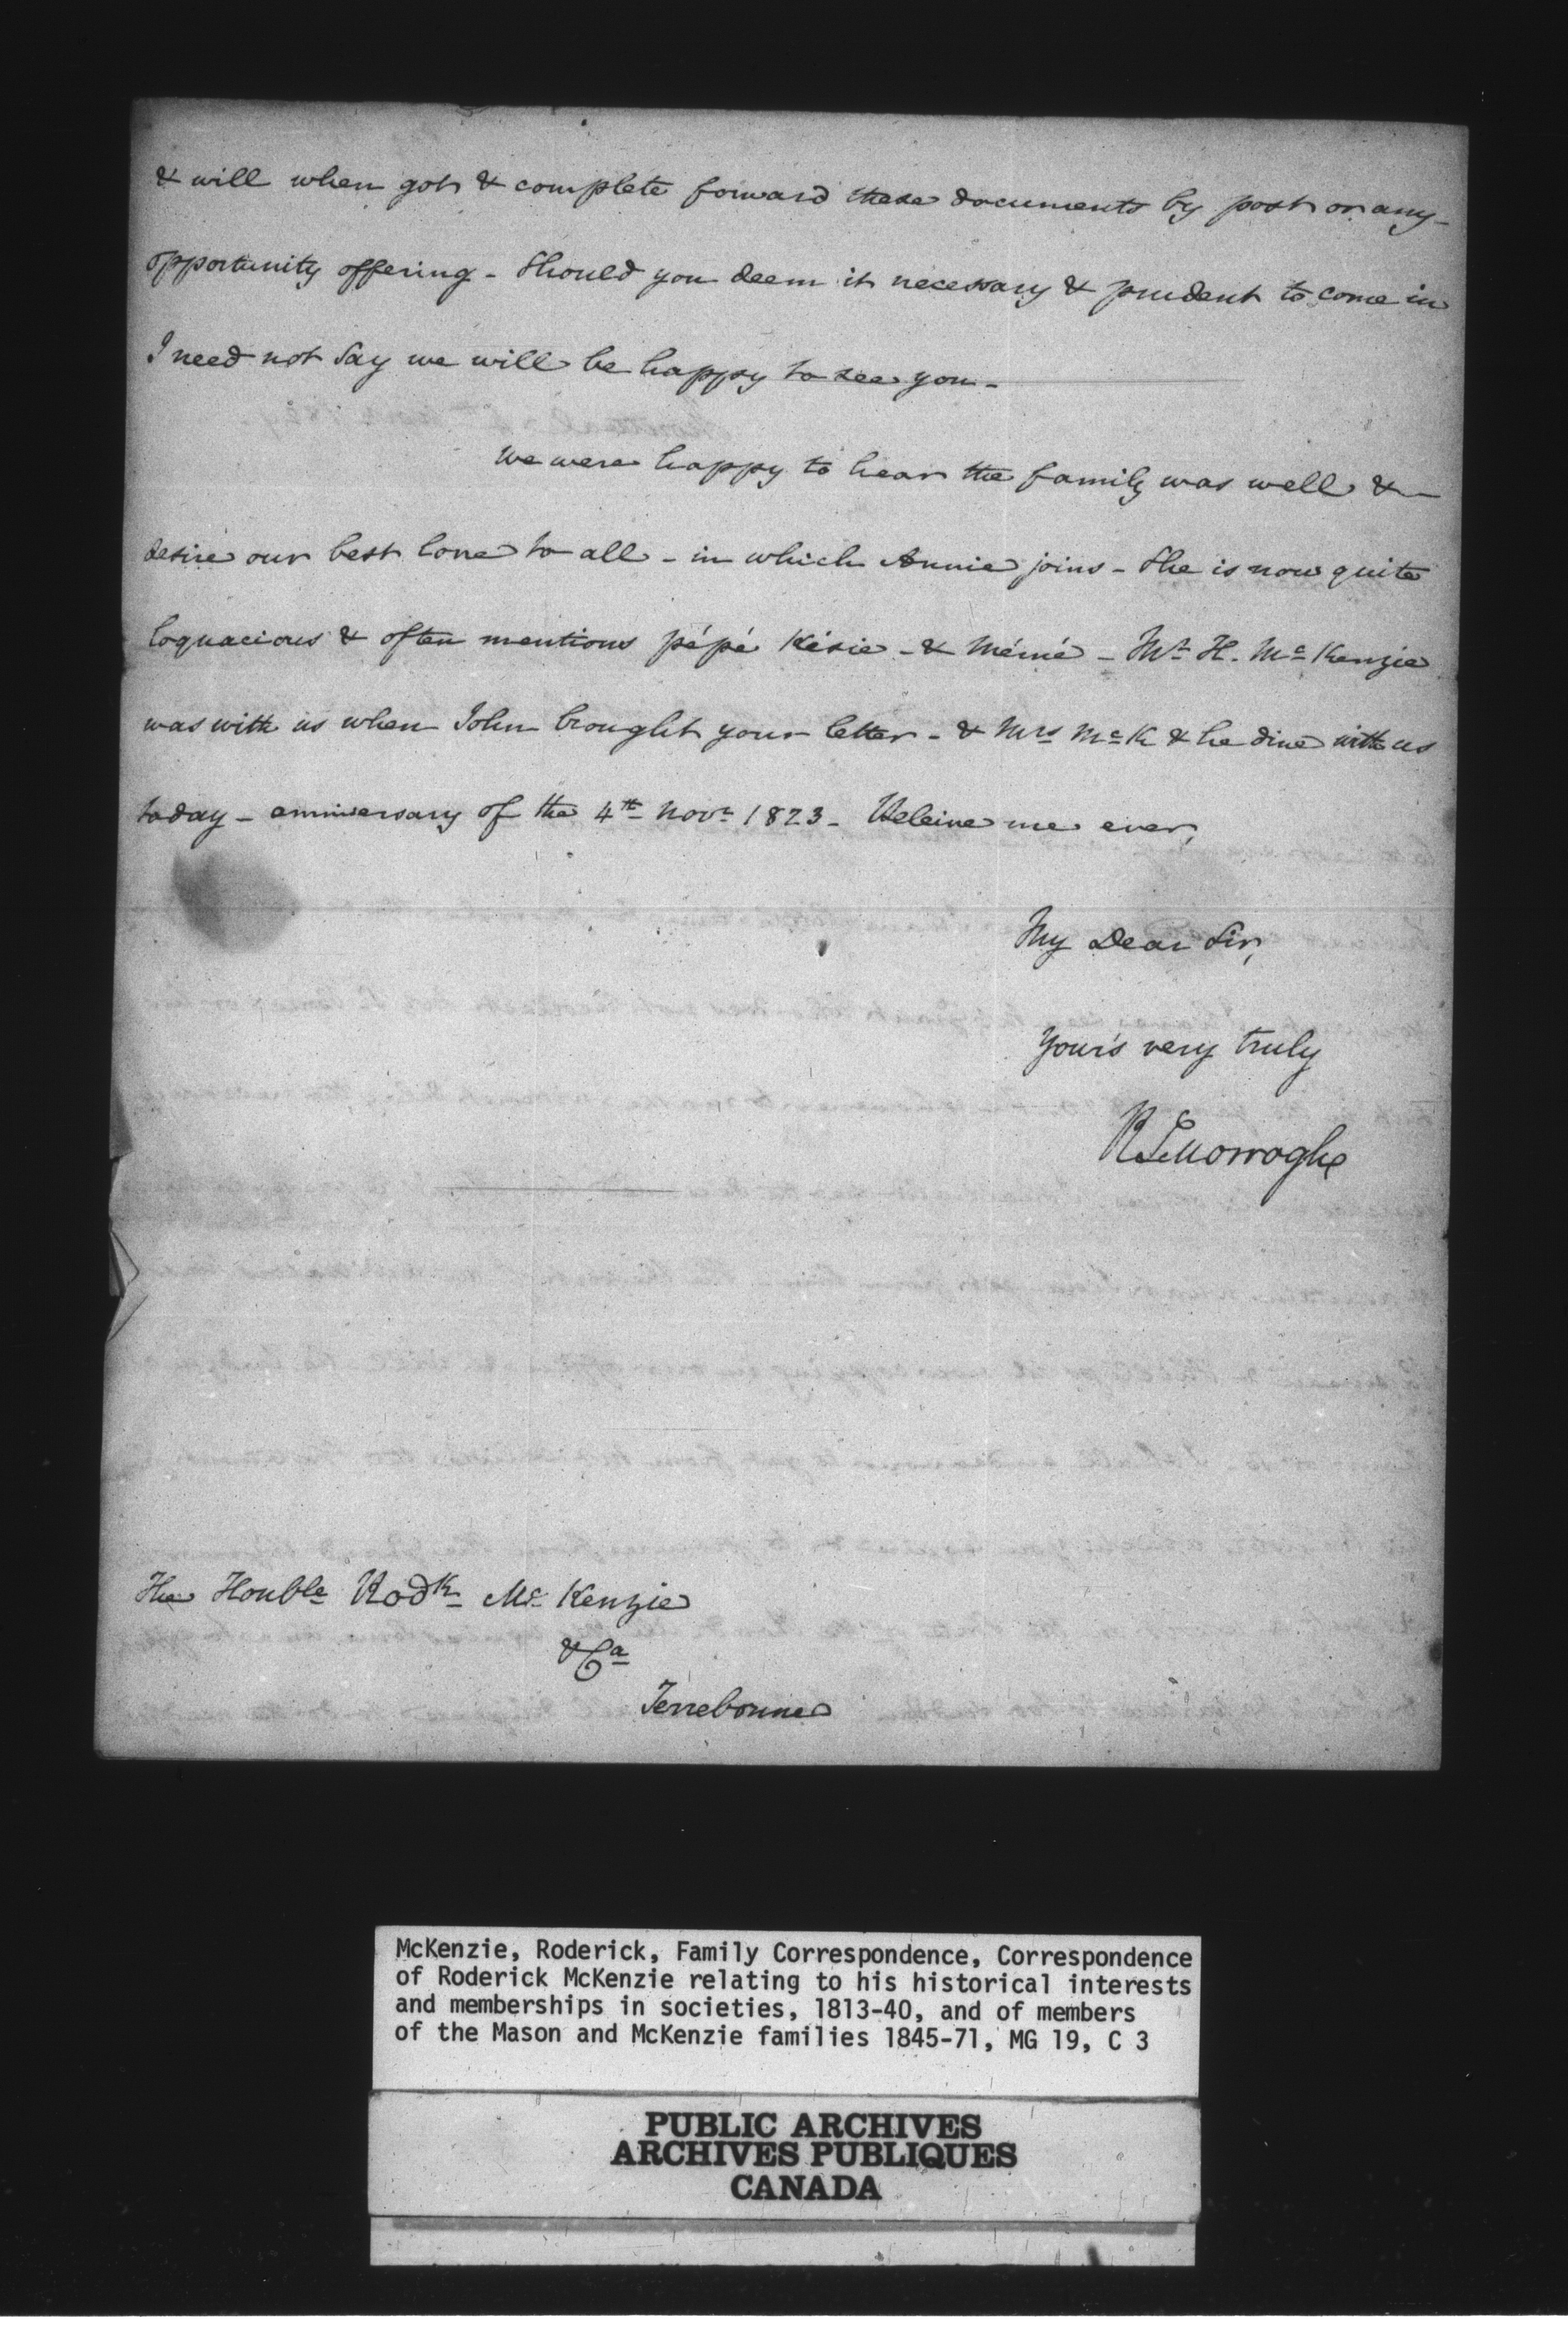 & will when got & complete forward these documents by post or any
opportunity offering - Should you deem it necessary & prudent to come in
I need not say we will be happy to see you -
We were happy to hear the family was well &
desire our best love to all - in which Annie joins - She is now quite
loquacious & often mentions pépé Késie - & Mémé - Mr H. McKenzie
was with us when John brought your letter - & Mrs McK & he dine with us
today - anniversary of the 4th Novr 1823 - Beleive me ever,
My Dear Sir,
Your's very truly
RLMorrogh
The Honble Rodk McKenzie
&Ca
Terrebonne
McKenzie, Roderick, Family Correspondence, Correspondence
of Roderick McKenzie relating to his historical interests
and memberships in societies, 1813-40, and of members
of the Mason and McKenzie families 1845-71, MG 19, C 3
PUBLIC ARCHIVES
ARCHIVES PUBLIQUES
CANADA